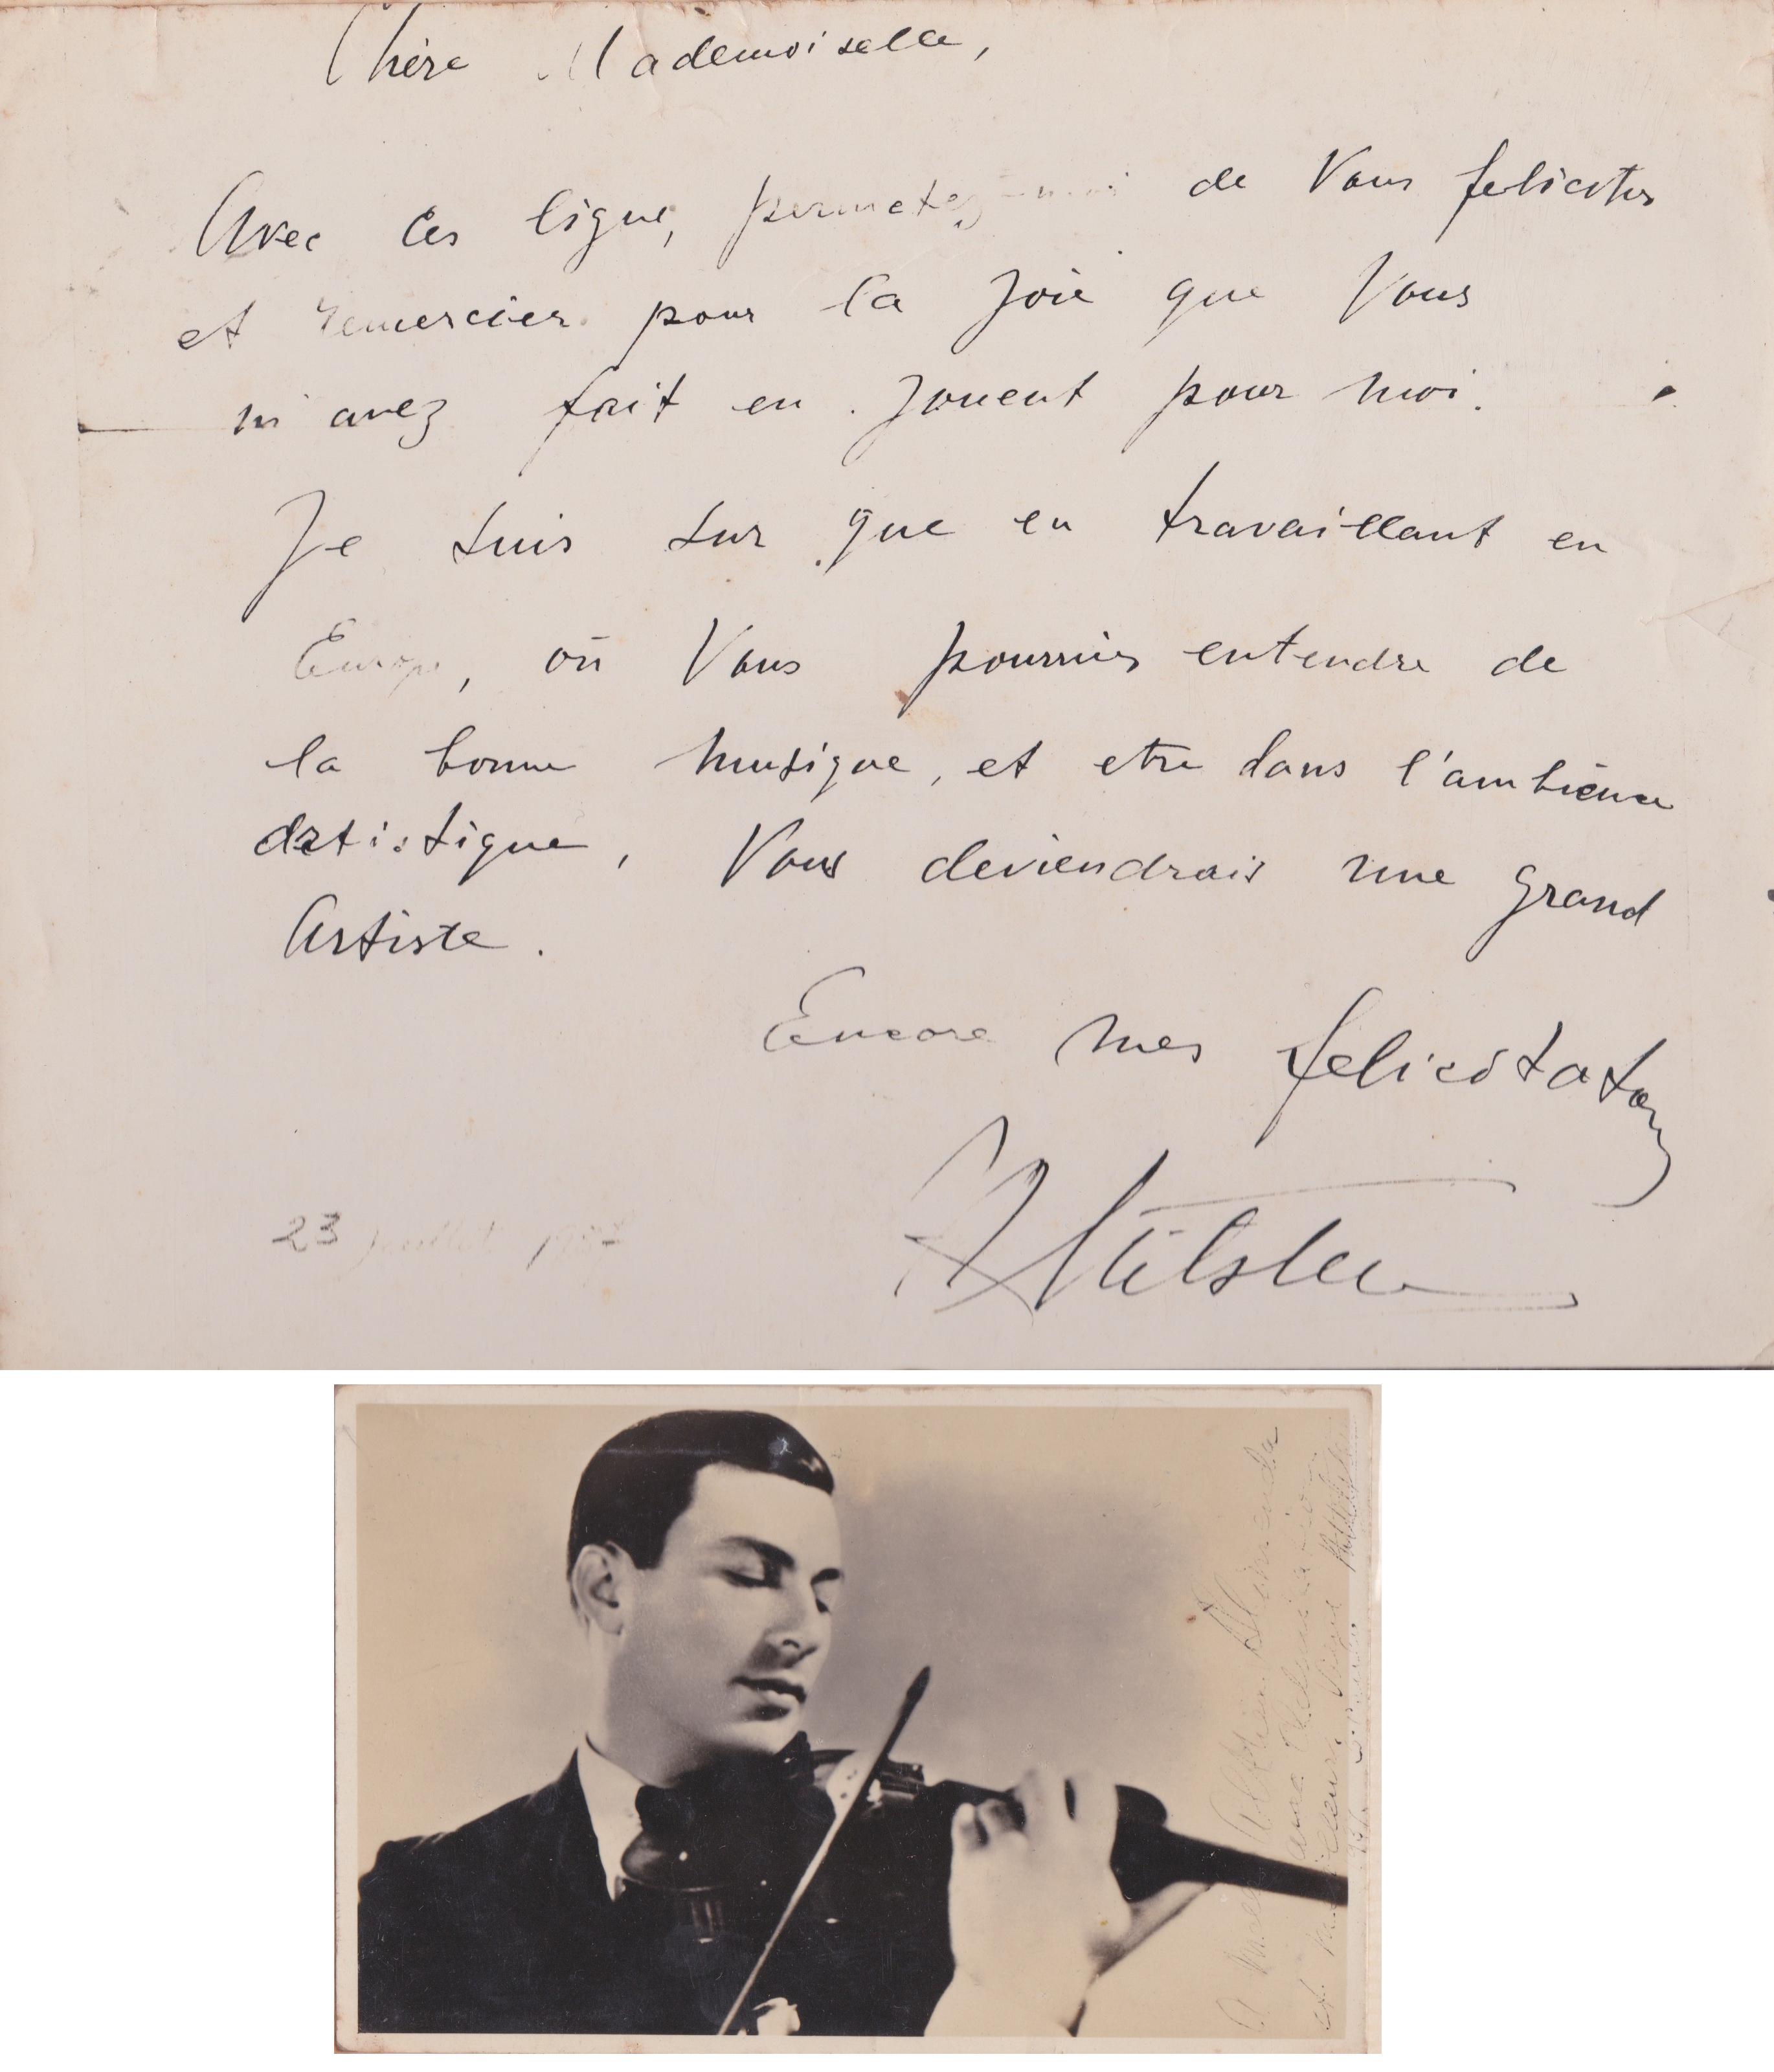 Chère Mademoiselle,
Avec ces ligne, permetez-moi de Vous feliciter
et remercier pour la Joie que Vous
m'avez fait en Jouent pour moi.
Je suis sur que en travaillant en
Europe, où Vous pourries entendre de
la bonne musique, et etre dans l'ambience
artistique, Vous deviendrais une grand
Artiste.
Encore mes felicitation
23 juillet
A
et